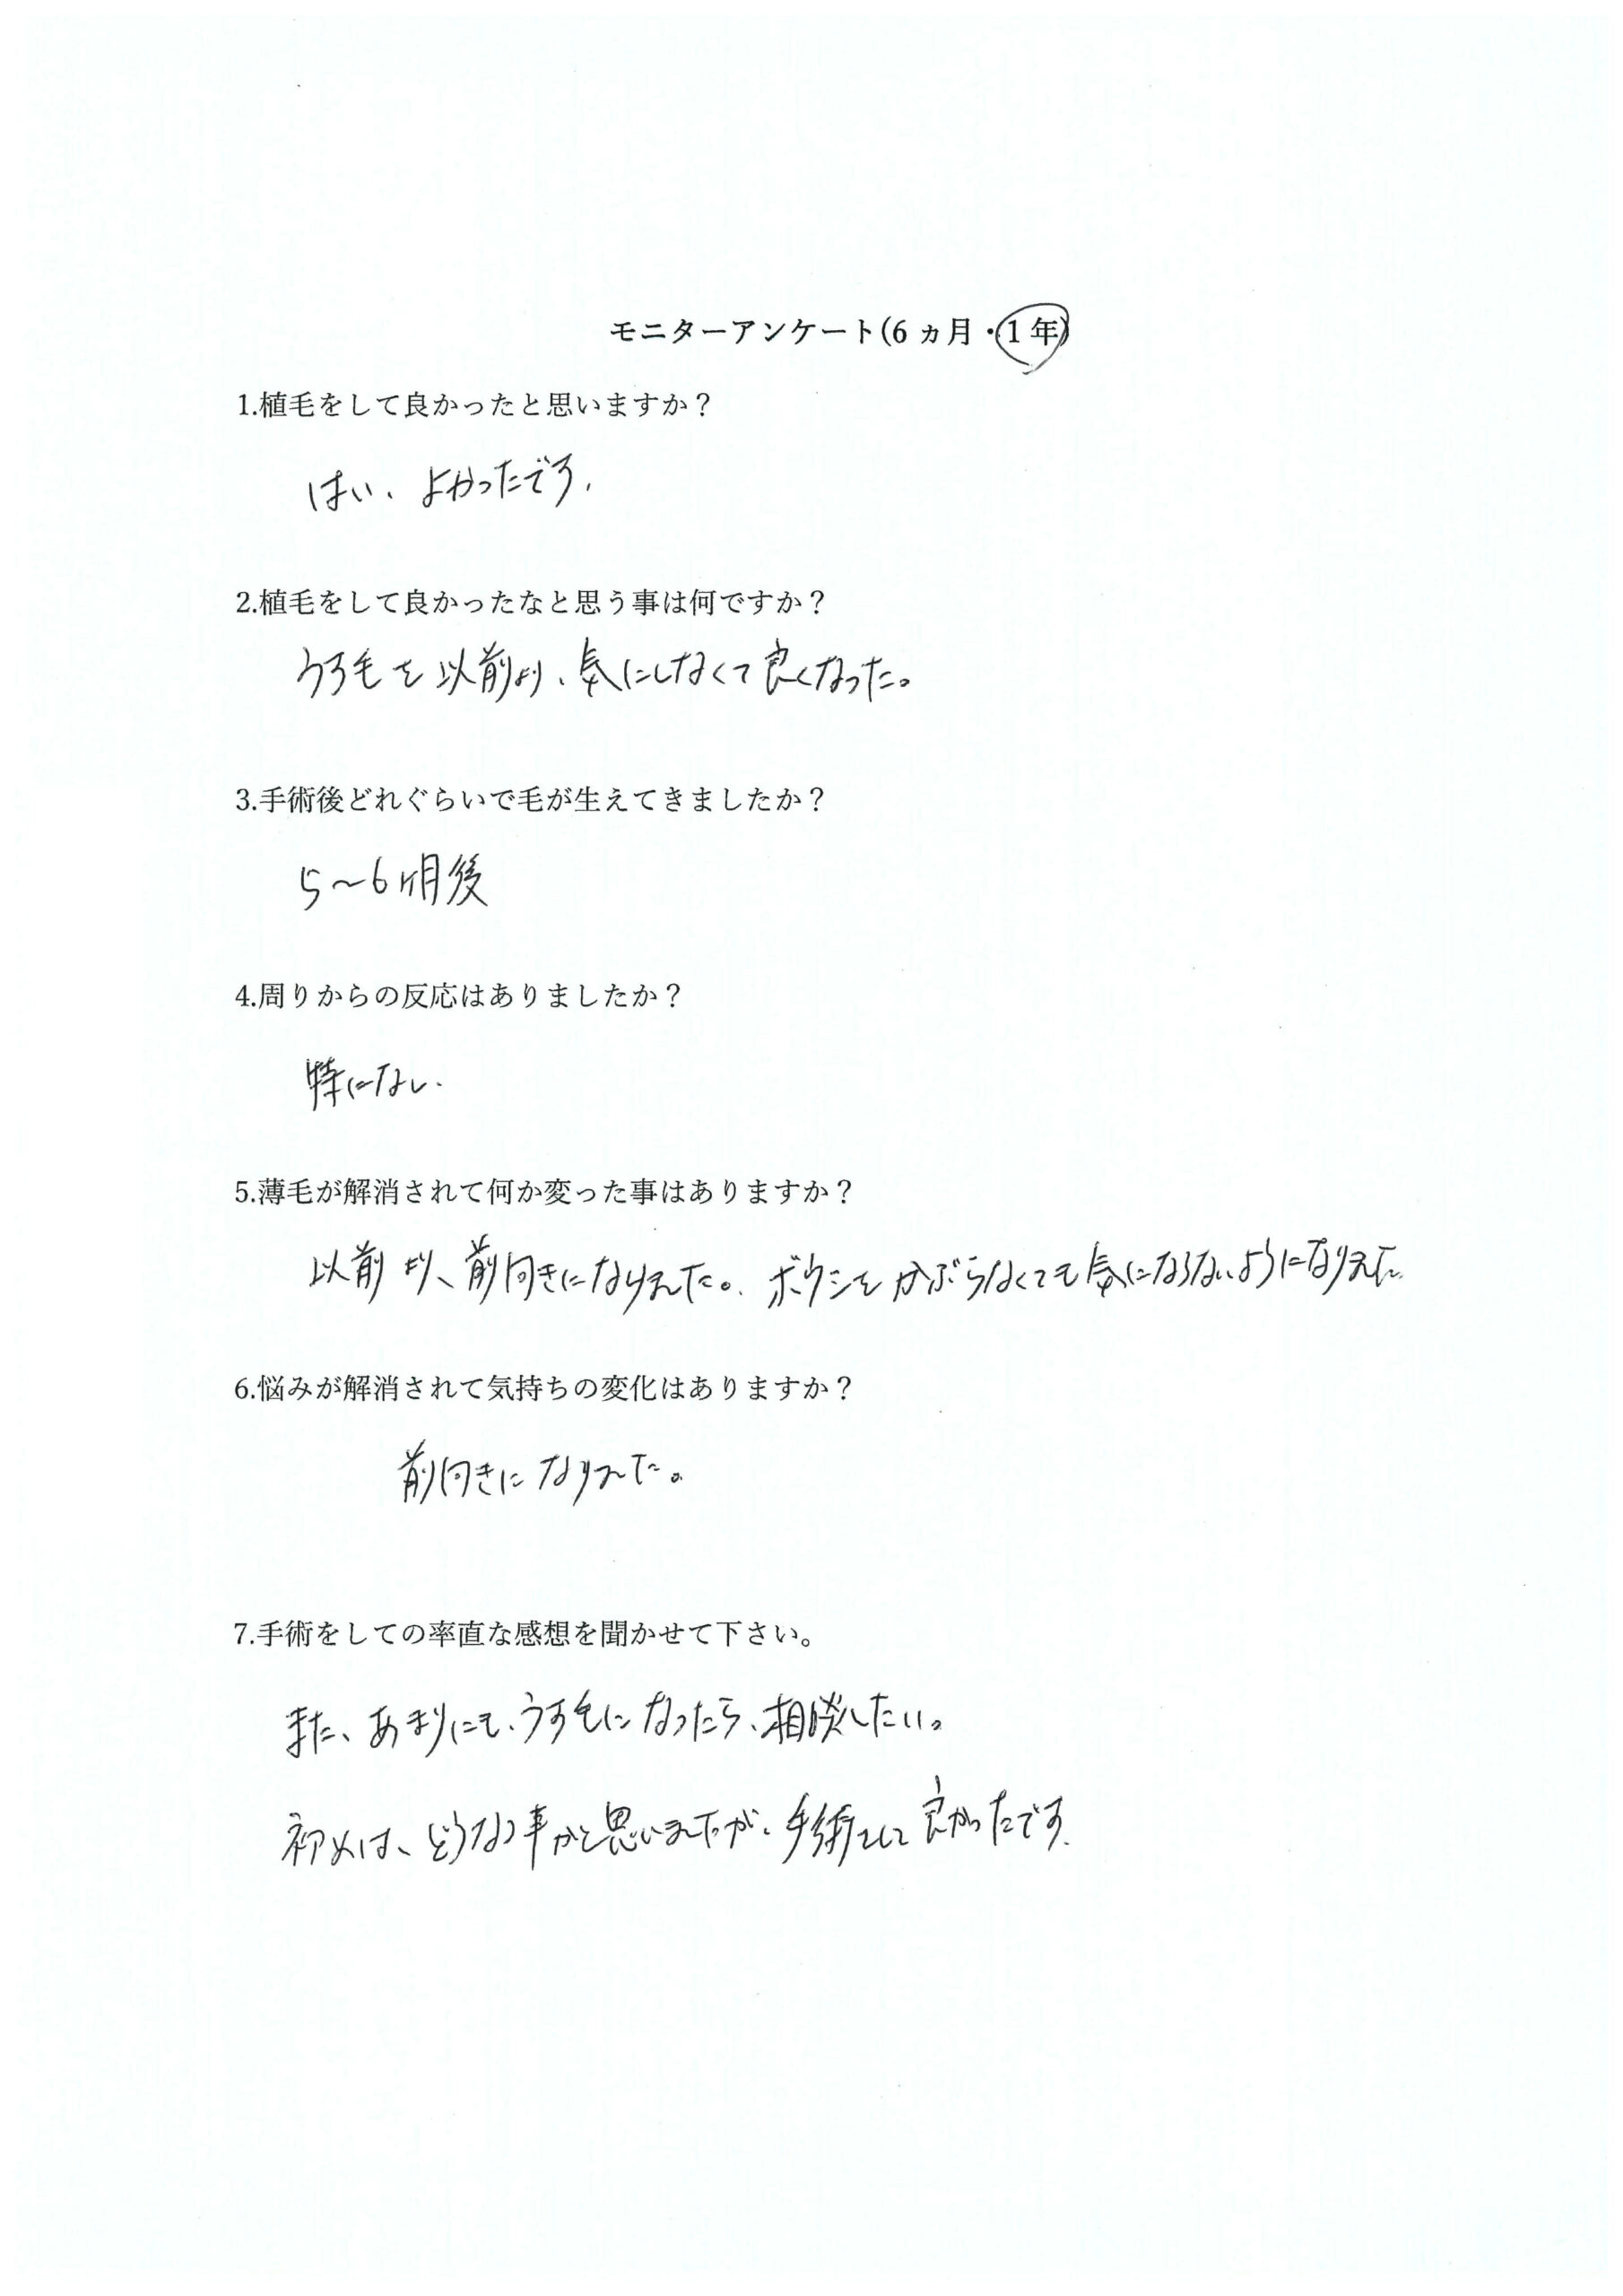 モニターアンケート(6 ヵ月・1 年)
1.植毛をして良かったと思いますか？
はい、よかったです.
2.植毛をして良かったなと思う事は何ですか？
うす毛を以前より、気にしなくて良くなった。
3.手術後どれぐらいで毛が生えてきましたか？
5～6ヶ月後
4.周りからの反応はありましたか？
特になし.
5.薄毛が解消されて何か変った事はありますか？
以前より、前向きになりました。ボウシをかぶらなくても気にならないようになりました.
6.悩みが解消されて気持ちの変化はありますか？
前向きになりました。
7.手術をしての率直な感想を聞かせて下さい。
また、あまりにも、うす毛になったら、相談したい。
初めは、どうなる事かと思いましたが、手術をして良かったです.